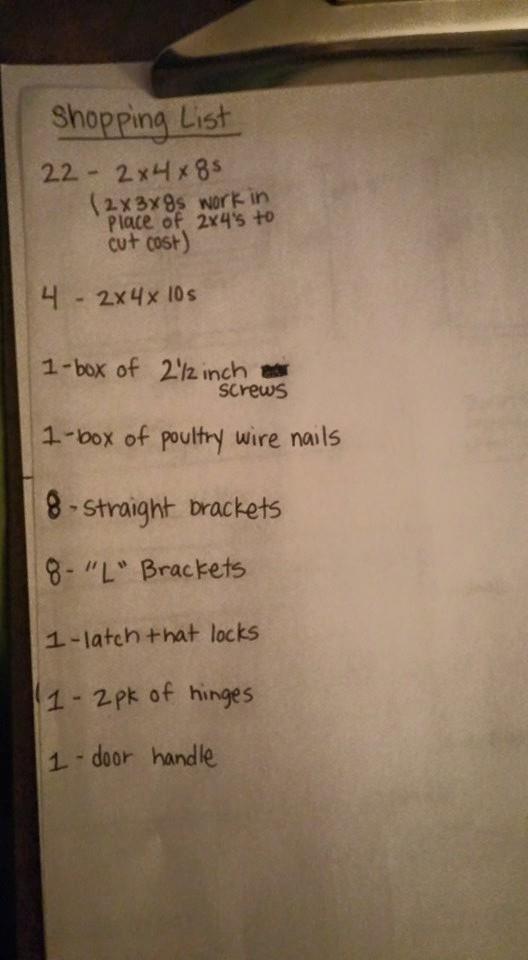 Shopping List
22 - 2x4x8s
(2x3x8s work in
place of 2x4's to
cut cost)
4 - 2x4x10s
1-box of 2 1/2 inch
screws
1-box of poultry wire nails
8-straight brackets
8-"L" Brackets
1-latch that locks
1 - 2pk of hinges
1 - door handle